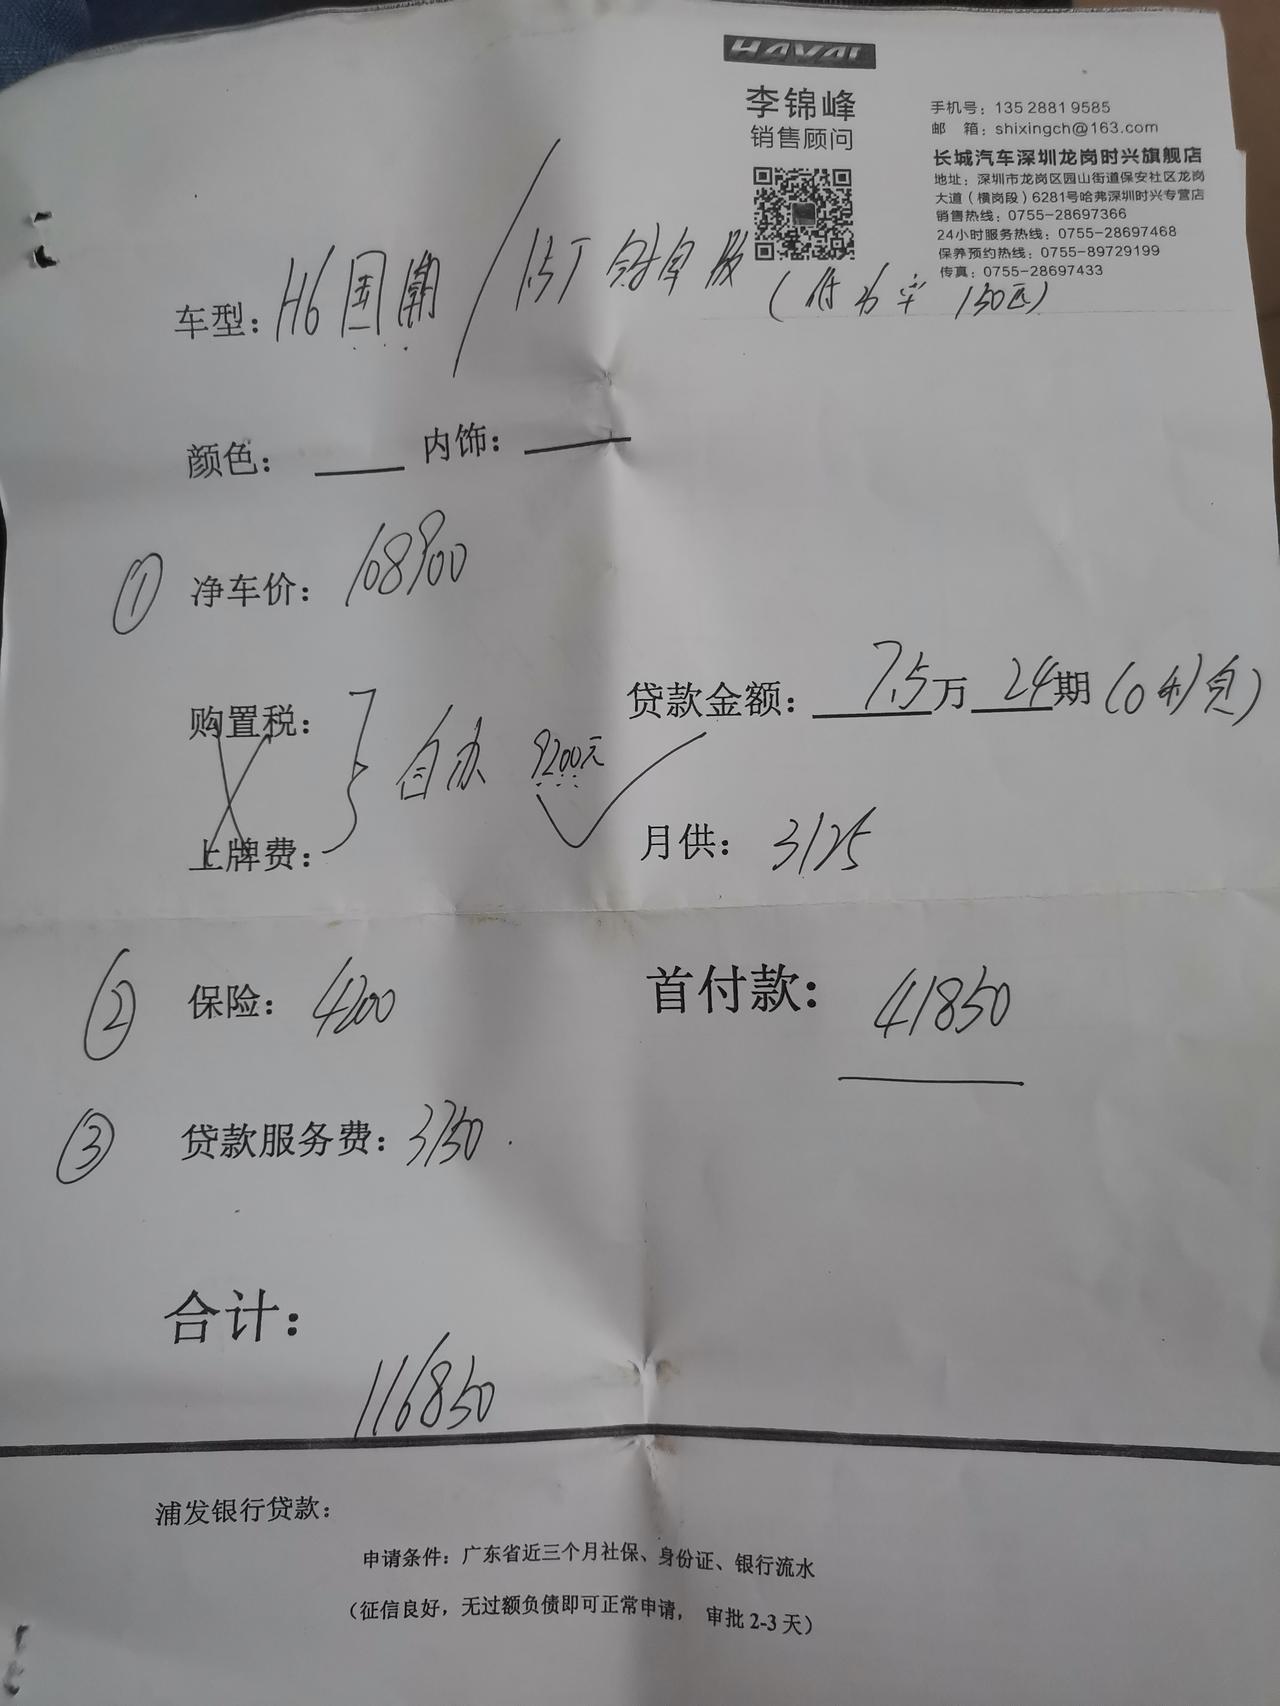 HAVAL
李锦峰
销售顾问
手机号：135 2881 9585
邮 箱：shixingch@163.com
长城汽车深圳龙岗时兴旗舰店
地址：深圳市龙岗区园山街道保安社区龙岗
大道（横岗段）6281号哈弗深圳时兴专营店
销售热线：0755-28697366
24小时服务热线：0755-28697468
保养预约热线：0755-89729199
传真：0755-28697433
车型：H6国潮 / 1.5T 版 (功率 150匹)
颜色： 内饰：
① 净车价：108900
购置税：
自办 9200元
上牌费：
贷款金额：7.5万 24期 (0利息)
月供：3125
② 保险：4200
首付款：41850
③ 贷款服务费：3750.
合计：
116850
浦发银行贷款：
申请条件：广东省近三个月社保、身份证、银行流水
（征信良好，无过额负债即可正常申请， 审批 2-3 天）